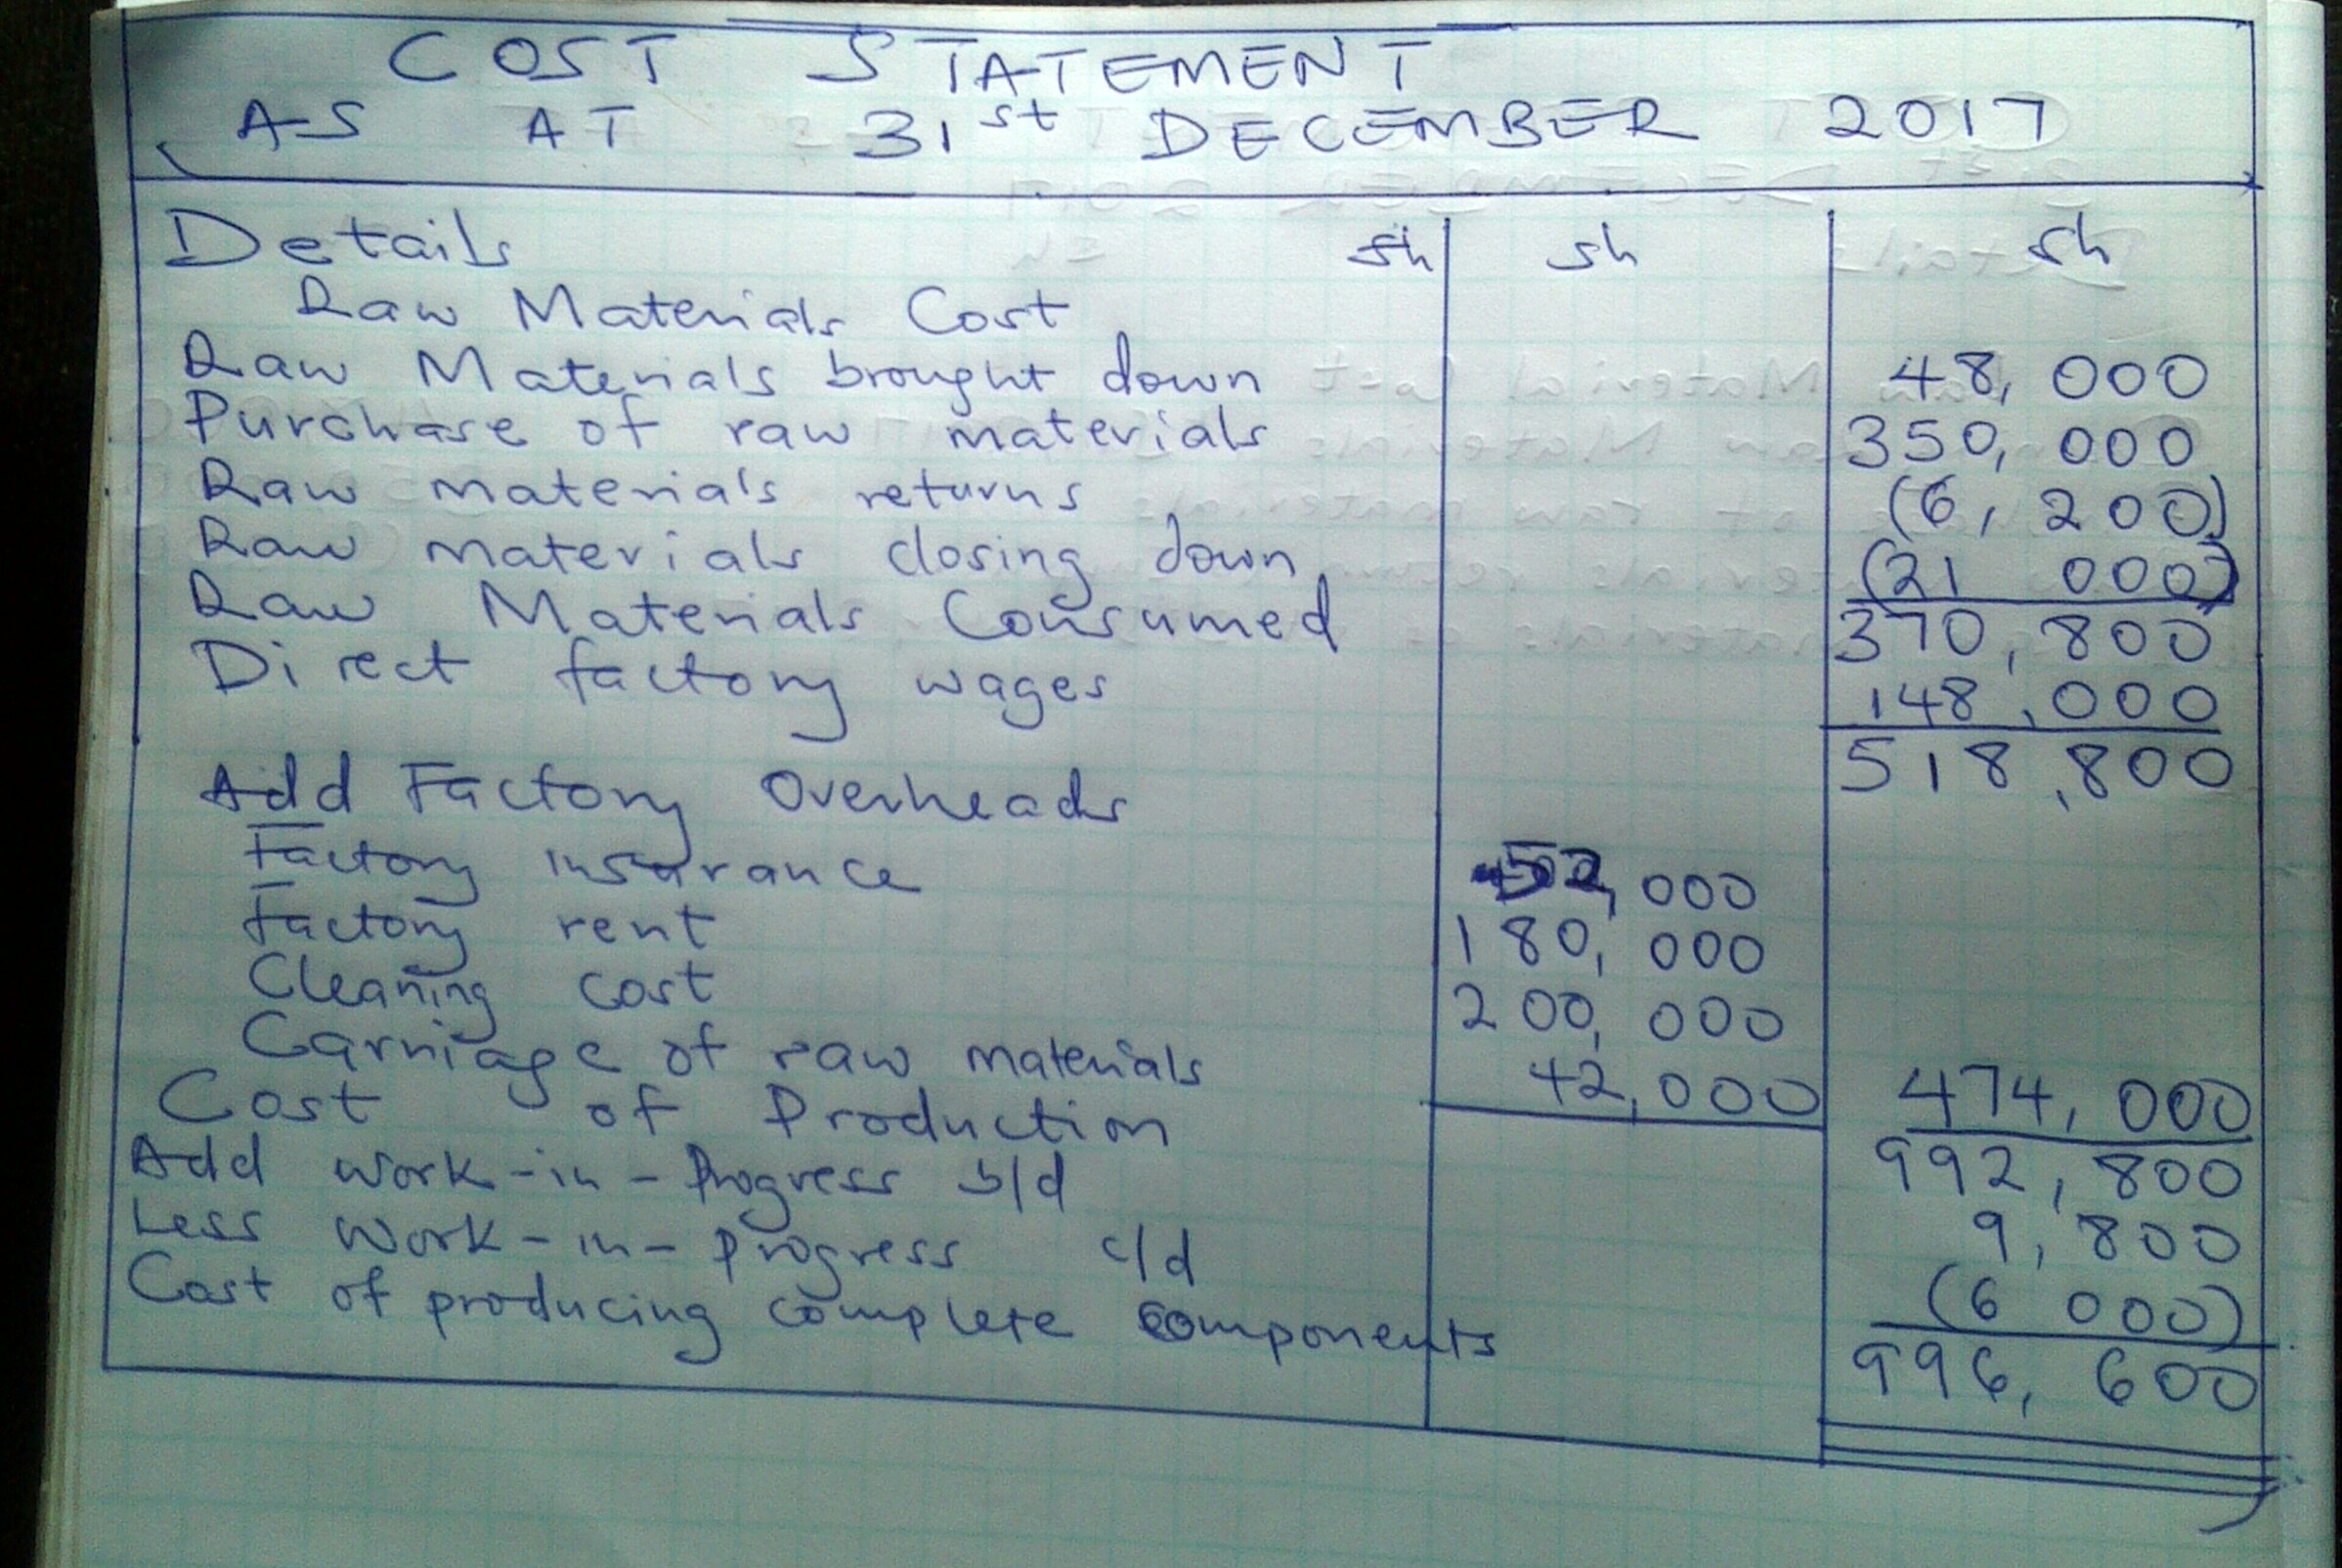 COST STATEMENT
AS AT 31st DECEMBER 2017
Details sh sh sh
Raw Materials Cost
Raw Materials brought down 48,000
Purchase of raw materials 350,000
Raw materials returns (6,200)
Raw materials closing down (21 000)
Raw Materials Consumed 370,800
Direct factory wages 148,000
518,800
Add Factory Overheads
Factory insurance 52,000
Factory rent 180,000
Cleaning cost 200,000
Carriage of raw materials 42,000 474,000
Cost of Production 992,800
Add Work-in-Progress b/d 9,800
Less Work-in-progress c/d (6 000)
Cost of producing complete components 996,600